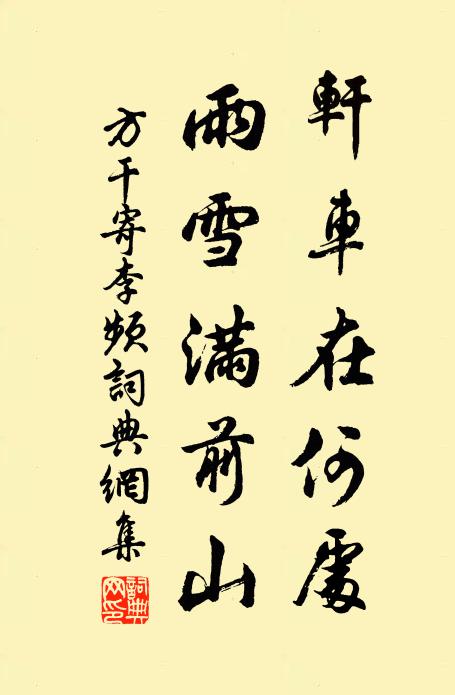 軒車在何處
雨雪滿前山
方干寄李頻詞典網集
詞典網印